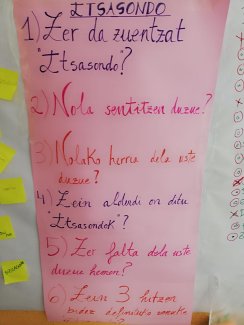 ITSASONDO
1) Zer da zuentzat
"Itsasondo"?
2) Nola sentitzen duzue?
3) Nolako herria dela uste
duzue?
4) Zein aldaudi on ditu
"Itsasondok"?
5) Zer falta dala uste
duzue hemen?
6) Zein 3 hitzen
bidez definituko